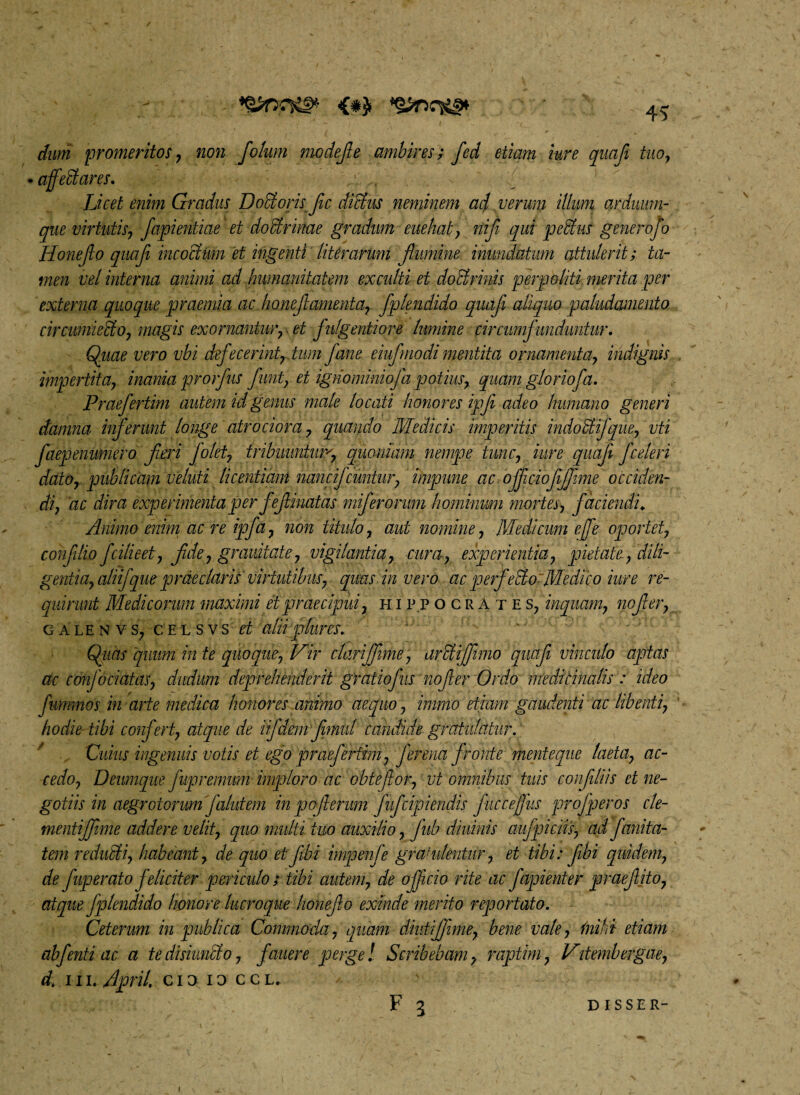 45
dum promeritos, non ſolum modeſte ambires; ſed etiam iure quaſi tuo,
affectares.
Licet enim Gradus Doctoris ſic dictus neminem ad verum illum arduum-
que virtutis, ſapientiae et doctrinae gradum euehat, niſi qui pectus generoſo
Honeſto quaſi incoctum et ingenti literarum flumine inundatum attulerit; ta-
men vel interna animi ad humanitatem exculti et doctrinis perpoliti merita per
externa quoque praemia ac honeſtamenta, ſplendido quaſi aliquo paludamento
circumiecto, magis exornantur, et fulgentiore lumine circumfunduntur.
Quae vero vbi defecerint, tum ſane eiuſmodi mentita ornamenta, indignis
impertita, inania prorſus ſunt, et ignominioſa potius, quam glorioſa.
Praeſertim autem id genus male locati honores ipſi adeo humano generi
damna inferunt longe atrociora, quando Medicis imperitis indoctiſque, vti
ſaepenumero fieri ſolet, tribuuntur, quoniam nempe tunc, iure quaſi ſceleri
dato, publicam veluti licentiam nanciſcuntur, impune ac officioſiſſime occiden-
di, ac dira experimenta per feſtinatas miſerorum hominum mortes, faciendi.
Animo enim ac re ipſa, non titulo, aut nomine, Medicum eſſe oportet,
conſilio ſcilicet, fide, grauitate, vigilantia, cura, experientia, pietate, dili-
gentia, aliiſque praeclaris virtutibus, quas in vero ac perfecto Medico iure re-
quirunt Medicorum maximi et praecipui, HIPPOCRATES, inquam, noſter,
GALENVS, CELSVS et alii plures.
Quas quum in te quoque, Vir clariſſime, arctiſſimo quaſi vinculo aptas
ac conſociatas, dudum deprehenderit gratioſus noſter Ordo medicinalis: ideo
ſummos in arte medica honores animo aequo, immo etiam gaudenti ac libenti,
hodie tibi confert, atque de iiſdem ſimul candide gratulatur.
Cuius ingenuis votis et ego praeſertim, ſerena fronte menteque laeta, ac-
cedo, Deumque ſupremum imploro ac obteſtor, vt omnibus tuis conſiliis et ne-
gotiis in aegrotorum ſalutem in poſterum ſuſcipiendis ſucceſſus proſperos cle-
mentiſſime addere velit, quo multi tuo auxilio, ſub diuinis auſpiciis, ad ſanita-
tem reducti, habeant, de quo et ſibi impenſe gratulentur, et tibi: ſibi quidem,
de ſuperato feliciter periculo; tibi autem, de officio rite ac ſapienter praeſtito,
atque ſplendido honore lucroque honeſto exinde merito reportato.
Ceterum in publica Commoda, quam diutiſſime, bene vale, mihi etiam
abſenti ac a te disiuncto, fauere perge! Scribebam, raptim, Vitembergae,
d. III. April. CIƆ IƆ CCL.
F 3
DISSER-